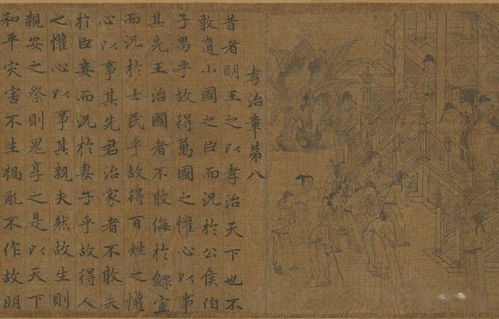 孝治章第八
昔者明王之以孝治天下也不
敢遺小國之臣而況於公侯伯
子男乎故得萬國之懽心以事
其先王治國者不敢侮於鰥寡
而況於士民乎故得百姓之懽
心以事其先君治家者不敢失
於臣妾而況於妻子乎故得人
之懽心以事其親夫然故生則
親安之祭則鬼享之是以天下
和平灾害不生禍亂不作故明